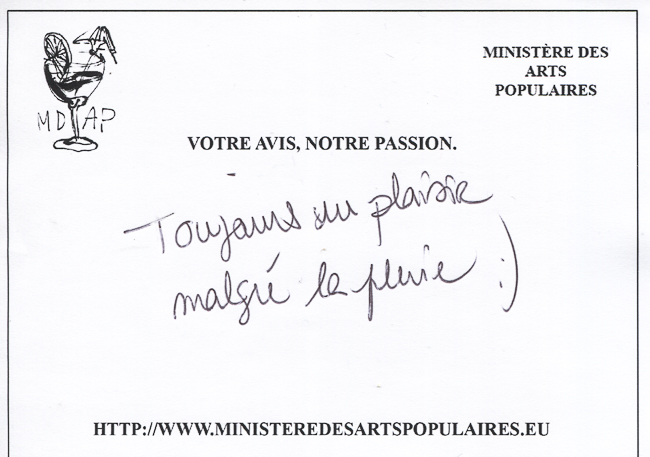 MDAP
MINISTÈRE DES
ARTS
POPULAIRES
VOTRE AVIS, NOTRE PASSION.
Toujours un plaisir
malgré la pluie :)
HTTP://WWW.MINISTEREDESARTSPOPULAIRES.EU